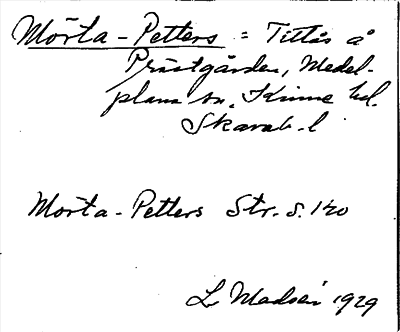 Mörta-Petters = Tittås å
Prästgården, Medel-
plana sn. Kinne hd.
Skarab. l
Mörta-Petters Str. s. 120
L Madsén 1929